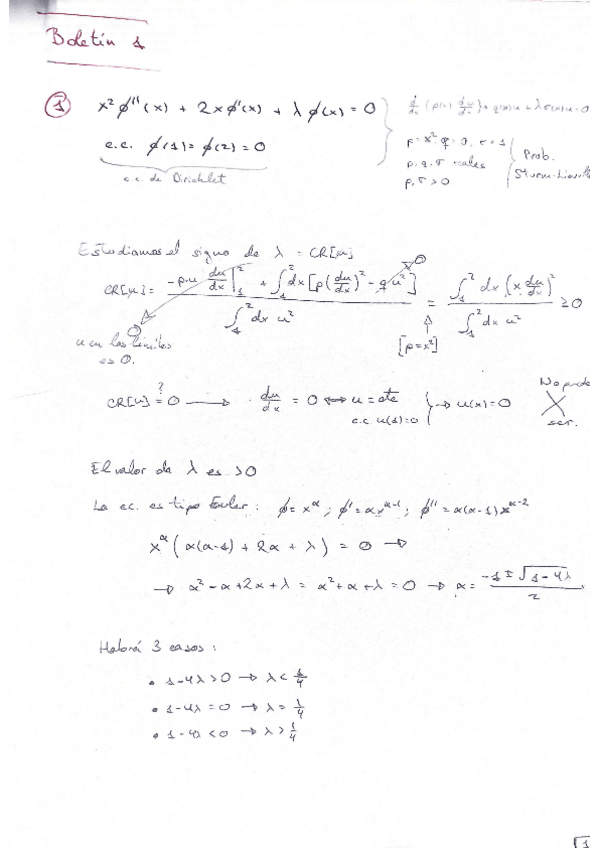 Boletín 1
① x²φ''(x) + 2xφ'(x) + λφ(x) = 0
d/dx (p(x) du/dx) + q(x)u + λσ(x)u = 0
c.c. φ(1) = φ(2) = 0
c.c. de Dirichlet
p = x², q = 0, σ = 1
p, q, σ reales
p, σ > 0
Prob.
Sturm-Liouville
Estudiamos el signo de λ = CR[u]
CR[u] = (-p·u du/dx |₁² + ∫₁² dx [p(du/dx)² - q u²]) / (∫₁² dx u²) = (∫₁² dx (x du/dx)²) / (∫₁² dx u²) ≥ 0
0
0
u en los límites
es 0.
[p = x²]
CR[u] =? 0 → du/dx = 0 ↔ u = cte
c.c. u(1) = 0
} → u(x) = 0
No puede
ser.
El valor de λ es > 0
La ec. es tipo Euler: φ = x^α ; φ' = αx^(α-1) ; φ'' = α(α-1)x^(α-2)
x^α (α(α-1) + 2α + λ) = 0 →
→ α² - α + 2α + λ = α² + α + λ = 0 → α = (-1 ± √(1-4λ)) / 2
Habrá 3 casos:
• 1-4λ > 0 → λ < 1/4
• 1-4λ = 0 → λ = 1/4
• 1-4λ < 0 → λ > 1/4
1